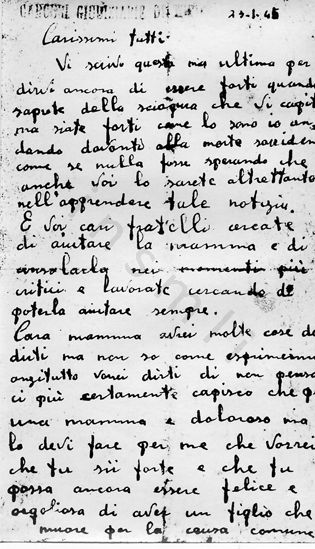 CARCERI GIUDIZIARIE DI
23-1-45
Carissimi tutti
Vi scrivo questa mia ultima per
dirvi ancora di essere forti quando
sapute della sciagura che vi capita
ma siate forti come lo sono io an
dando davanti alla morte
come se nulla fosse sperando che
anche voi lo sarete altrettanto
nell'apprendere tale notizia.
E voi cari fratelli cercate
di aiutare la mamma e di
consolarla nei momenti più
critici e lavorate cercando di
poterla aiutare sempre.
Cara mamma avrei molte cose da
dirti ma non so come esprimermi
anzitutto vorrei dirti di non pensar
ci più certamente capisco che per
una mamma è doloroso ma
lo devi fare per me che vorrei
che tu sii forte e che tu
possa ancora essere felice e
orgoliosa di aver un figlio che
muore per la causa comune